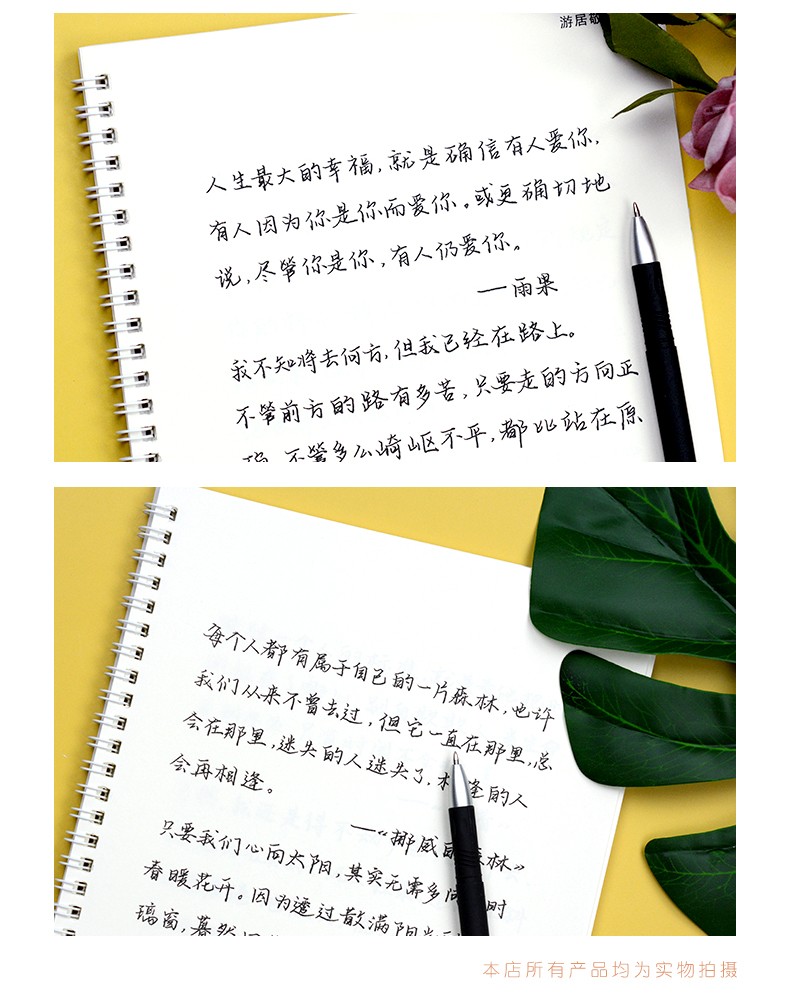 游居敬
人生最大的幸福,就是确信有人爱你,
有人因为你是你而爱你。或更确切地
说,尽管你是你,有人仍爱你。
—雨果
我不知将去何方,但我已经在路上。
不管前方的路有多苦,只要走的方向正
不管多么崎岖不平,都比站在原
每个人都有属于自己的一片森林,也许
我们从来不曾去过,但它一直在那里,总
会在那里,迷失的人迷失了,的人
会再相逢。
—《挪威森林》
只要我们心向太阳,其实无需多问时
春暖花开。因为透过散满阳光
璃窗,蓦然
本店所有产品均为实物拍摄